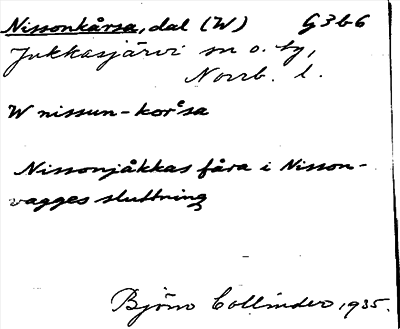 Nissonkårsa, dal (W) G3b6
Jukkasjärvi sn o. tg,
Norrb. l.
W nissun-korᵉsa
Nissonjåkkas fåra i Nisson-
vagges sluttning
Björn Collinder 1935.